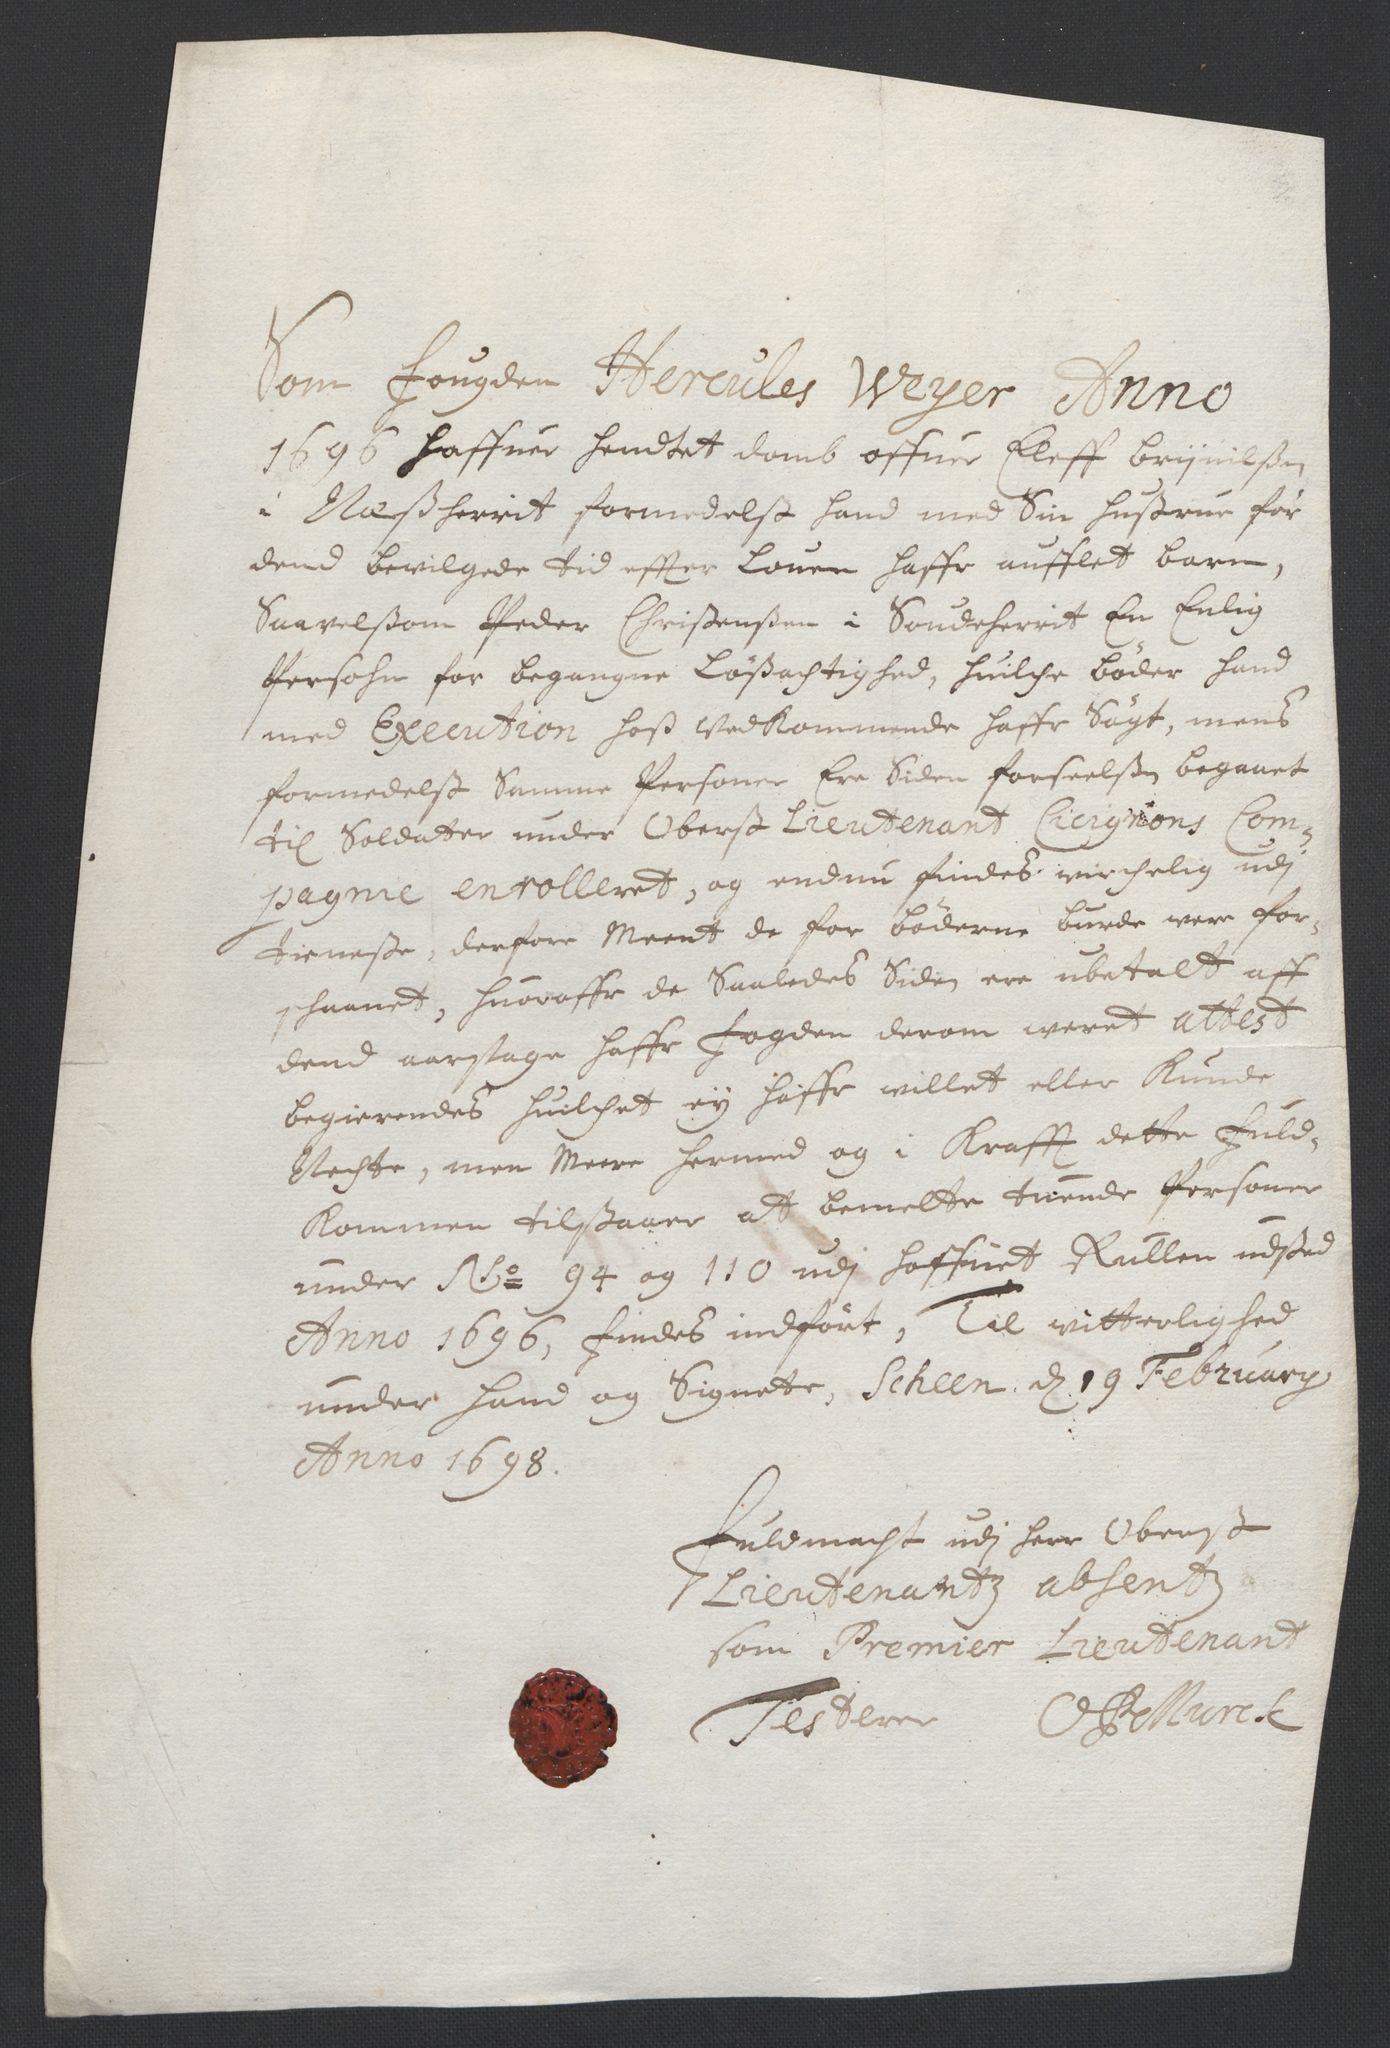 Som fougden Hercules Weyer Anno
1696 haffuer hendtet domb offuer Eleff brijnilßen
i Næßherrit formedelst hand med Sin hustrue før
dend bevilgede tid effter Louen haffr aufflet barn,
Saavelsom Peder Christensen i Soudeherrit En Enlig
Persohn for begangne Lößachtighed, huilche böder hand
med Execution hoß Vedkommende haffr Sögt, mens
formedelst Samme Personer Ere Siden forseelsen begaaet
til Soldatter under Oberst Lieutenant Cicignons Com-
pagnie enrolleret, og endnu findes wirchelig udj
tieneste, derfore Meent de for böderne burde were for-
schaanet, huoraffr de Saaledes Siden ere ubetalt aff
dend aarsage haffr fogden derom weret attest
begierendes huilchet ey haffr willet eller Kunde
Nechte, men Meere hermed og i Krafft dette fuld-
kommen tilstaaer at bemelte tuende Personer
under No 94 og 110 udj hoffuet Rullen udsted
Anno 1696, findes indfört, Til witterlighed
under hand og Signete, Scheen d 19 February
Anno 1698.
Fuldmacht udj herr Oberst
Lieutenantz absentz
som Premier Lieutenant
Testerer